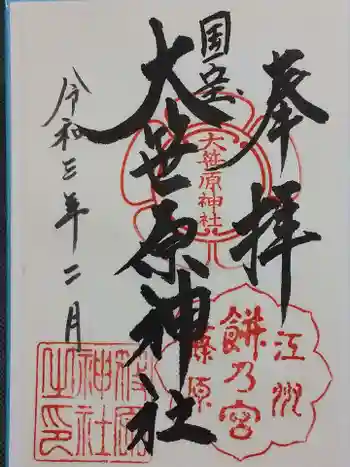 奉拝
国宝
大笹原神社
令和三年二月
大笹原神社
江州
餅乃宮
篠原